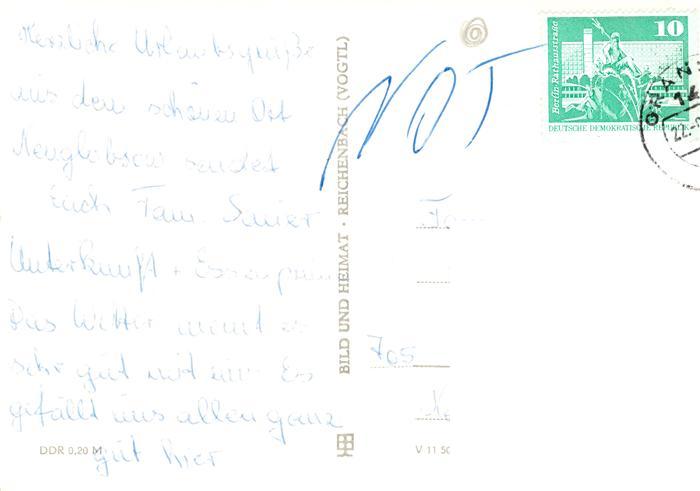 Herzliche Urlaubsgrüße
aus dem schönen Ort
Neuglobsow sendet
Euch Fam.
Unterkunft + Essen prima
Das Wetter meint es
sehr gut mit uns Es
gefällt uns allen ganz
gut hier
DDR 0,20 M
BILD UND HEIMAT · REICHENBACH (VOGTL)
V 11 50
NOT
10
Berlin-Rathausstraße
DEUTSCHE DEMOKRATISCHE REPUBLIK
ORAN
14
22.
705